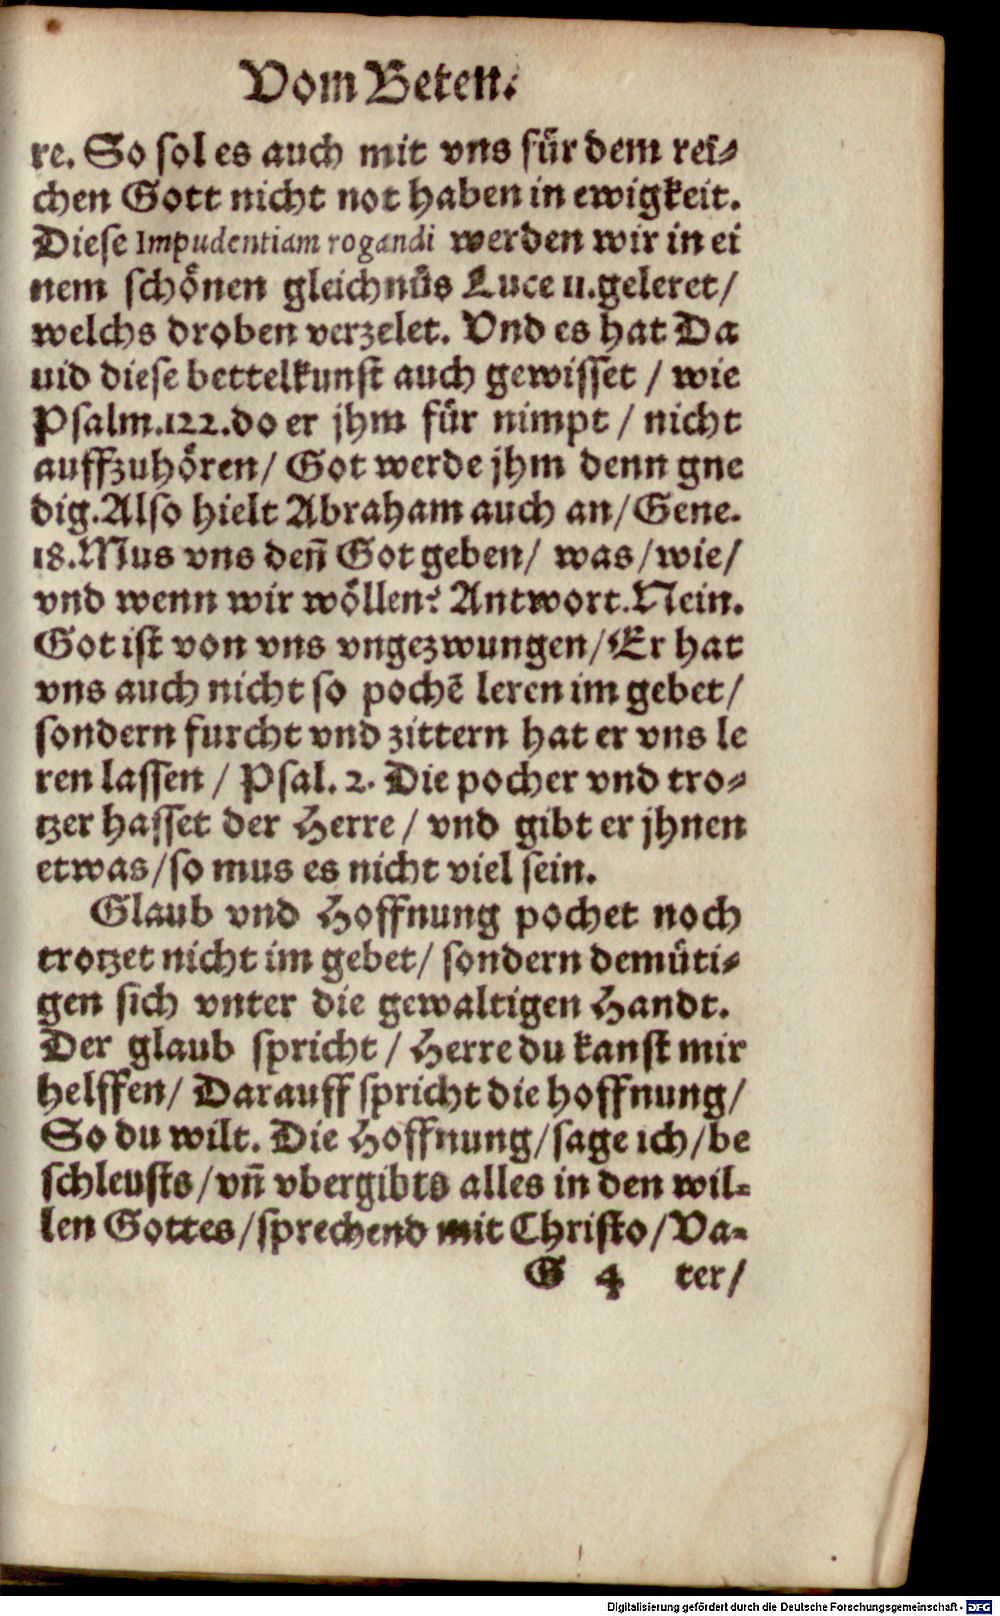 Vom Beten.
re. So sol es auch mit vns für dem rei-
chen Gott nicht not haben in ewigkeit.
Diese Impudentiam rogandi werden wir in ei
nem schönen gleichnüs Luce 11. geleret/
welchs droben verzelet. Vnd es hat Da
uid diese bettelkunst auch gewisset / wie
Psalm.122.do er jhm für nimpt / nicht
auffzuhören/ Got werde jhm denn gne
dig.Also hielt Abraham auch an/Gene.
18.Mus vns deñ Got geben/ was/wie/
vnd wenn wir wöllen? Antwort.Nein.
Got ist von vns vngezwungen/Er hat
vns auch nicht so pochẽ leren im gebet/
sondern furcht vnd zittern hat er vns le
ren lassen / Psal. 2. Die pocher vnd tro-
tzer hasset der Herre / vnd gibt er jhnen
etwas/so mus es nicht viel sein.
Glaub vnd Hoffnung pochet noch
trotzet nicht im gebet/ sondern demüti-
gen sich vnter die gewaltigen Handt.
Der glaub spricht / Herre du kanst mir
helffen/ Darauff spricht die hoffnung/
So du wilt. Die Hoffnung/sage ich/be
schleusts/vñ vbergibts alles in den wil-
len Gottes/sprechend mit Christo/Va-
G 4 ter/
Digitalisierung gefördert durch die Deutsche Forschungsgemeinschaft - DFG